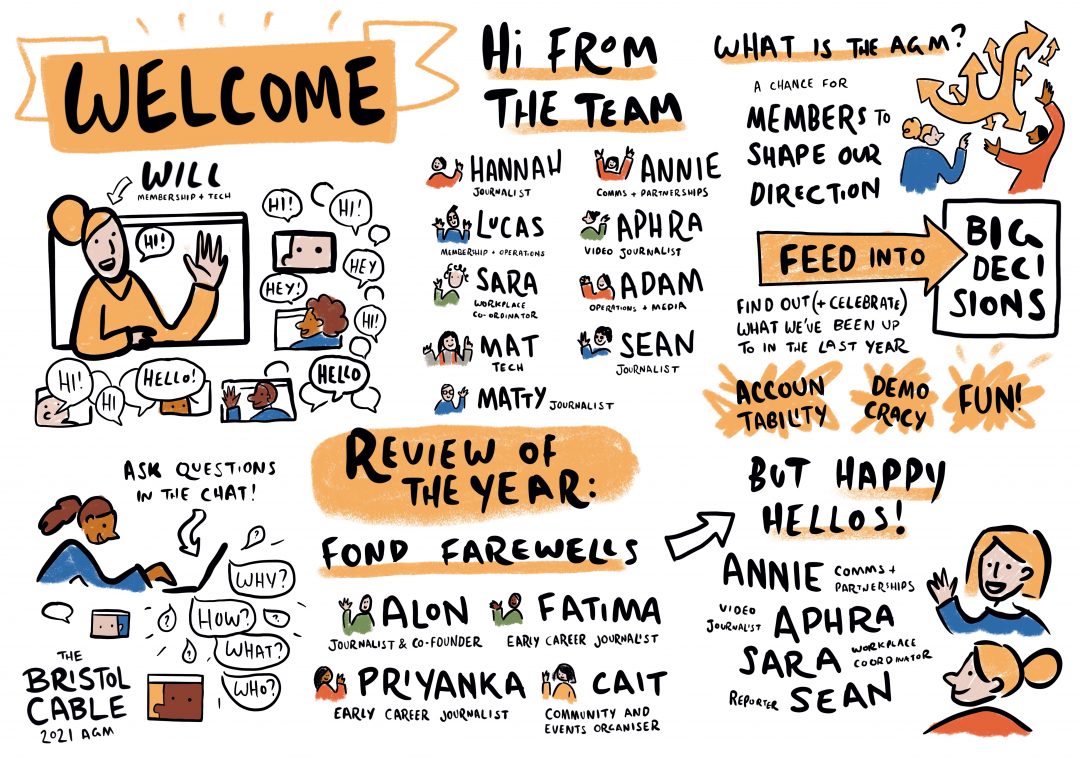 WELCOME
WILL
MEMBERSHIP + TECH
HI!
HI!
HI!
HEY
HEY!
HI!
HI!
HI
HELLO!
HELLO
ASK QUESTIONS
IN THE CHAT!
?
WHY?
HOW?
?
?
WHAT?
?
WHO?
THE
BRISTOL
CABLE
2021 AGM
HI FROM
THE TEAM
HANNAH
JOURNALIST
ANNIE
COMMS + PARTNERSHIPS
LUCAS
MEMBERSHIP + OPERATIONS
APHRA
VIDEO JOURNALIST
SARA
WORKPLACE
CO-ORDINATOR
ADAM
OPERATIONS + MEDIA
MAT
TECH
SEAN
JOURNALIST
MATTY JOURNALIST
REVIEW OF
THE YEAR:
FOND FAREWELLS
ALON
JOURNALIST & CO-FOUNDER
FATIMA
EARLY CAREER JOURNALIST
PRIYANKA
EARLY CAREER JOURNALIST
CAIT
COMMUNITY AND
EVENTS ORGANISER
WHAT IS THE AGM?
A CHANCE FOR
MEMBERS TO
SHAPE OUR
DIRECTION
FEED INTO
BIG
DECI
SIONS
FIND OUT (+ CELEBRATE)
WHAT WE'VE BEEN UP
TO IN THE LAST YEAR
ACCOUN
TABILITY
DEMO
CRACY
FUN!
BUT HAPPY
HELLOS!
ANNIE COMMS +
PARTNERSHIPS
VIDEO
JOURNALIST APHRA
SARA WORKPLACE
COORDINATOR
REPORTER SEAN